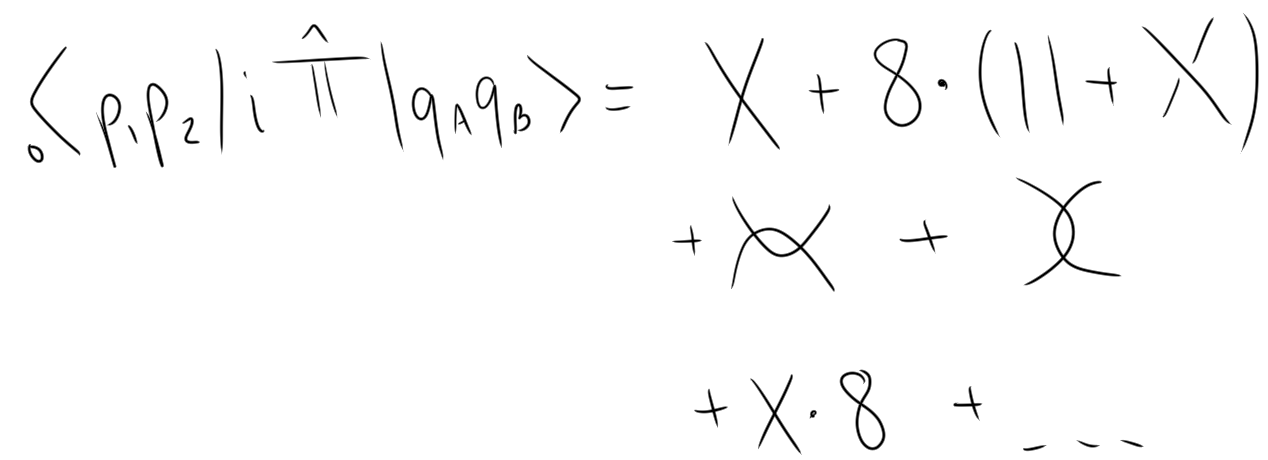 ₀⟨p₁p₂|i \hat{\overline{T}}|q_A q_B⟩ = X + 8 · (|| + X)
+ +
+ X · 8 + ---